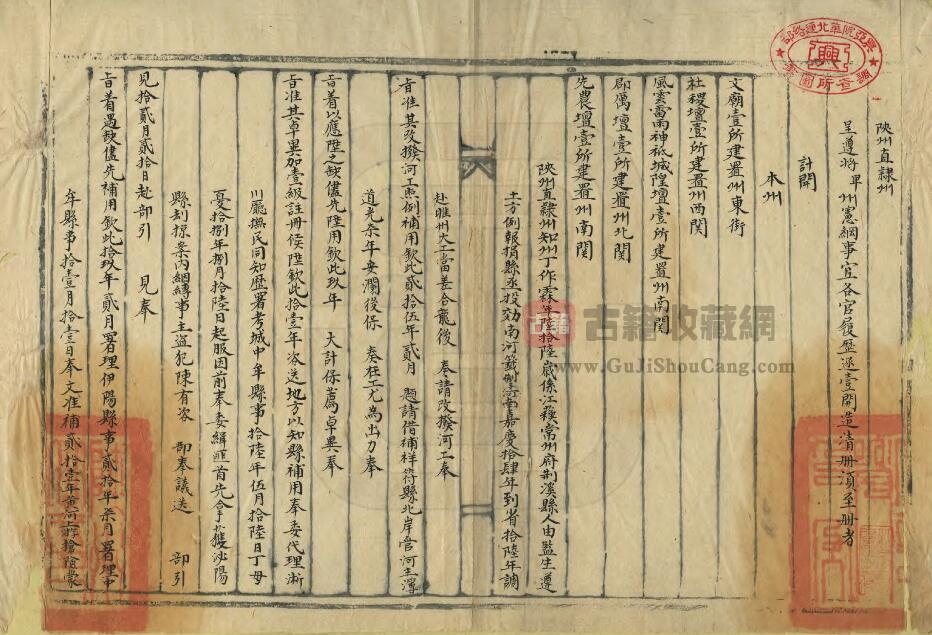 陝州直隸州
呈遵將卑州憲綱事宜各官履歷逐壹開造清冊須至冊者
計開
本州
文廟壹所建置州東街
社稷壇壹所建置州西関
風雲雷雨神祇城隍壇壹所建置州南関
郡厲壇壹所建置州北関
先農壇壹所建置州南関
陝州直隸州知州丁作霖年陸拾陸歲係江蘇常州府荆溪縣人由監生遵
土方例報捐縣丞投効南河籤掣河南嘉慶拾肆年到省拾陸年調
赴睢州大工當差合龍後 奏請改撥河工奉
旨准其改撥河工照例補用欽此貳拾伍年貳月 題請借補祥符縣北岸管河主簿
道光柒年安瀾後保 奏在工尤為出力奉
旨着以應陞之缺儘先陞用欽此玖年 大計保薦卓異奉
旨准其卓異加壹級註冊候陞欽此拾壹年咨送地方以知縣補用奉委代理淅
川廳撫民同知歷署考城中牟縣事拾陸年伍月拾陸日丁母
憂拾捌年捌月拾陸日起服因前奉委緝匪首先拿獲泌陽
縣刦掠案內綑縛事主盜犯陳有咨 部奉議送 部引
見拾貳月貳拾日赴部引 見奉
旨着遇缺儘先補用欽此拾玖年貳月署理伊陽縣事貳拾年柒月署理中
牟縣事拾壹月拾壹日奉文准補貳拾壹年黃河上游搶險蒙
興亞院華北連絡部
調查所圖書
興
古籍
古籍收藏網
www.GuJiShouCang.com